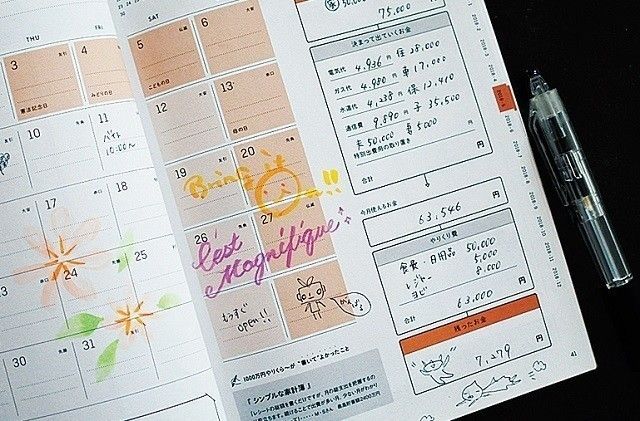 THU
FRI
SAT
3 友引
4 先負
5 仏滅
6 大安
憲法記念日
みどりの日
こどもの日
10
11
バイト
12
13
母の日
17
18
19
20
Bring it on!!
24
25
26
27
C'est
Magnifique
30
31
もうすぐ
open!!
がんばる
75,000 円
決まって出ていくお金
電気代 4,936 円 住 28,000
ガス代 4,980 円 車 17,000
水道代 4,238 円 保 12,410
通信費 9,890 円 子 35,500
特別出費用の取り置き
合計 円
今月使えるお金
63,546 円
やりくり費
食費・日用品 50,000
レジャー 5,000
ヨビ 8,000
合計 63,000 円
残ったお金
7,279 円
1000万円やりくらーが“書いて”よかったこと
「シンプルな家計簿」
41
2018-2
2018-3
2018-4
2018-5
2018-6
2018-7
2018-8
2018-9
2018-10
2018-11
2018-12